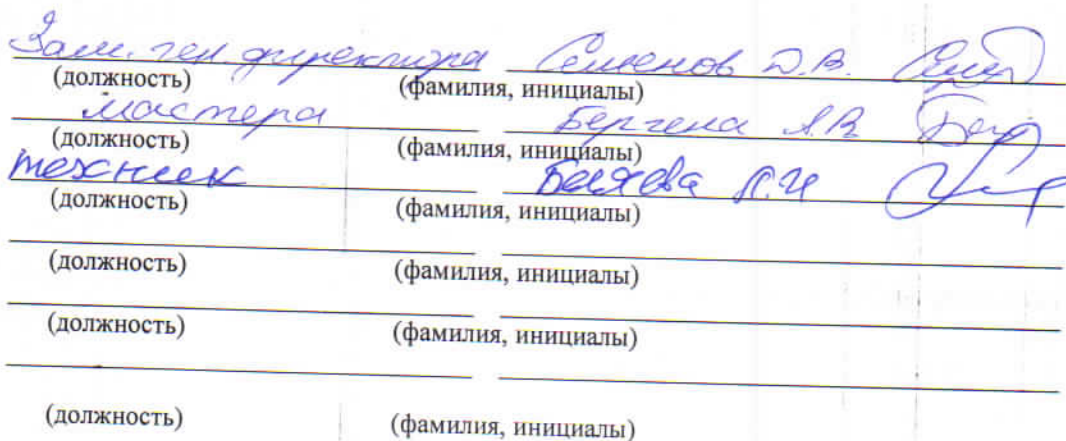 Зам. ген. директора Семенов Д.В.
(должность) (фамилия, инициалы)
мастера А.В.
(должность) (фамилия, инициалы)
техник Л.И
(должность) (фамилия, инициалы)
(должность) (фамилия, инициалы)
(должность) (фамилия, инициалы)
(должность) (фамилия, инициалы)